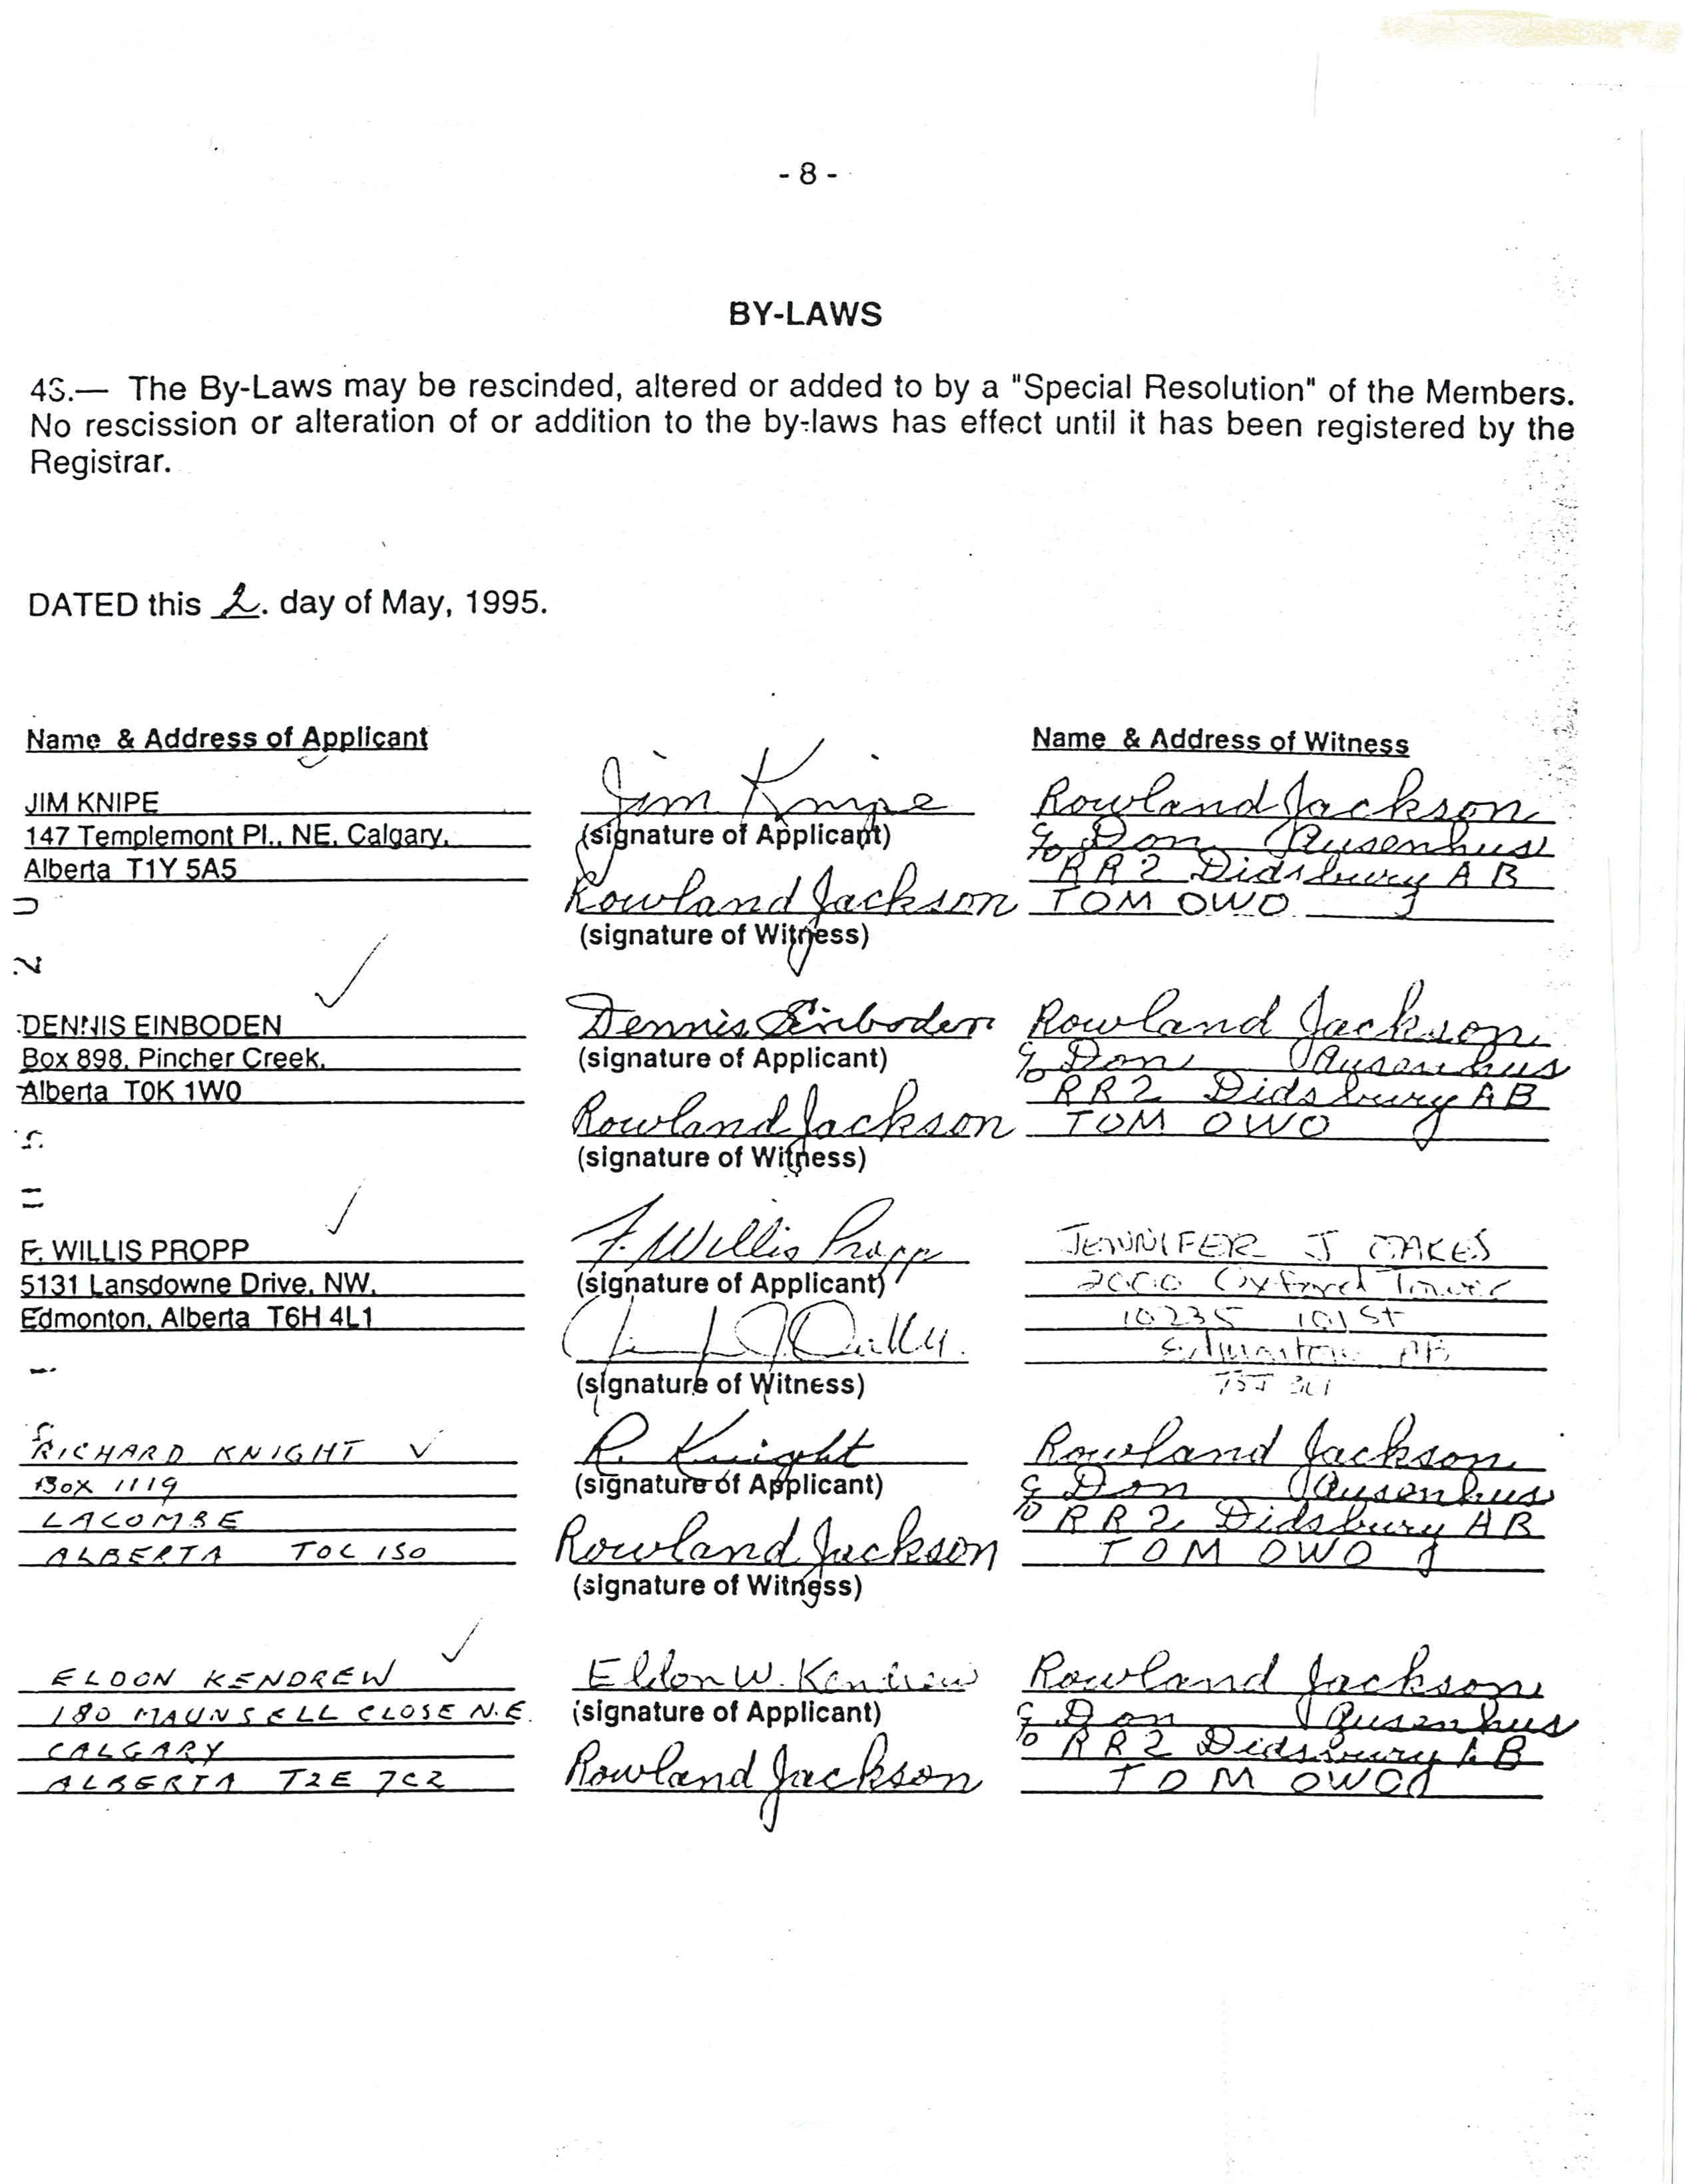 - 8 -
BY-LAWS
43.— The By-Laws may be rescinded, altered or added to by a "Special Resolution" of the Members.
No rescission or alteration of or addition to the by-laws has effect until it has been registered by the
Registrar.
DATED this 2. day of May, 1995.
Name & Address of Applicant
Name & Address of Witness
JIM KNIPE
147 Templemont Pl., NE, Calgary,
Alberta T1Y 5A5
Jim Knipe
(signature of Applicant)
Rowland Jackson
(signature of Witness)
Rowland Jackson
c/o Don Ausenhus
RR2 Didsbury AB
TOM OWO
DENNIS EINBODEN
Box 898, Pincher Creek,
Alberta T0K 1W0
Dennis Einboden
(signature of Applicant)
Rowland Jackson
(signature of Witness)
Rowland Jackson
c/o Don Ausenhus
RR2 Didsbury AB
TOM OWO
F. WILLIS PROPP
5131 Lansdowne Drive, NW,
Edmonton, Alberta T6H 4L1
F. Willis Propp
(signature of Applicant)
(signature of Witness)
JENNIFER J OAKES
2000 Oxford Tower
10235 101 St
Edmonton AB
RICHARD KNIGHT
BOX 1119
LACOMBE
ALBERTA TOC 1SO
R. Knight
(signature of Applicant)
Rowland Jackson
(signature of Witness)
Rowland Jackson
c/o Don Ausenhus
RR2 Didsbury AB
TOM OWO
ELDON KENDREW
180 MAUNSELL CLOSE N.E.
CALGARY
ALBERTA T2E 7C2
Eldon W. Kendrew
(signature of Applicant)
Rowland Jackson
Rowland Jackson
c/o Don Ausenhus
RR2 Didsbury AB
TOM OWO